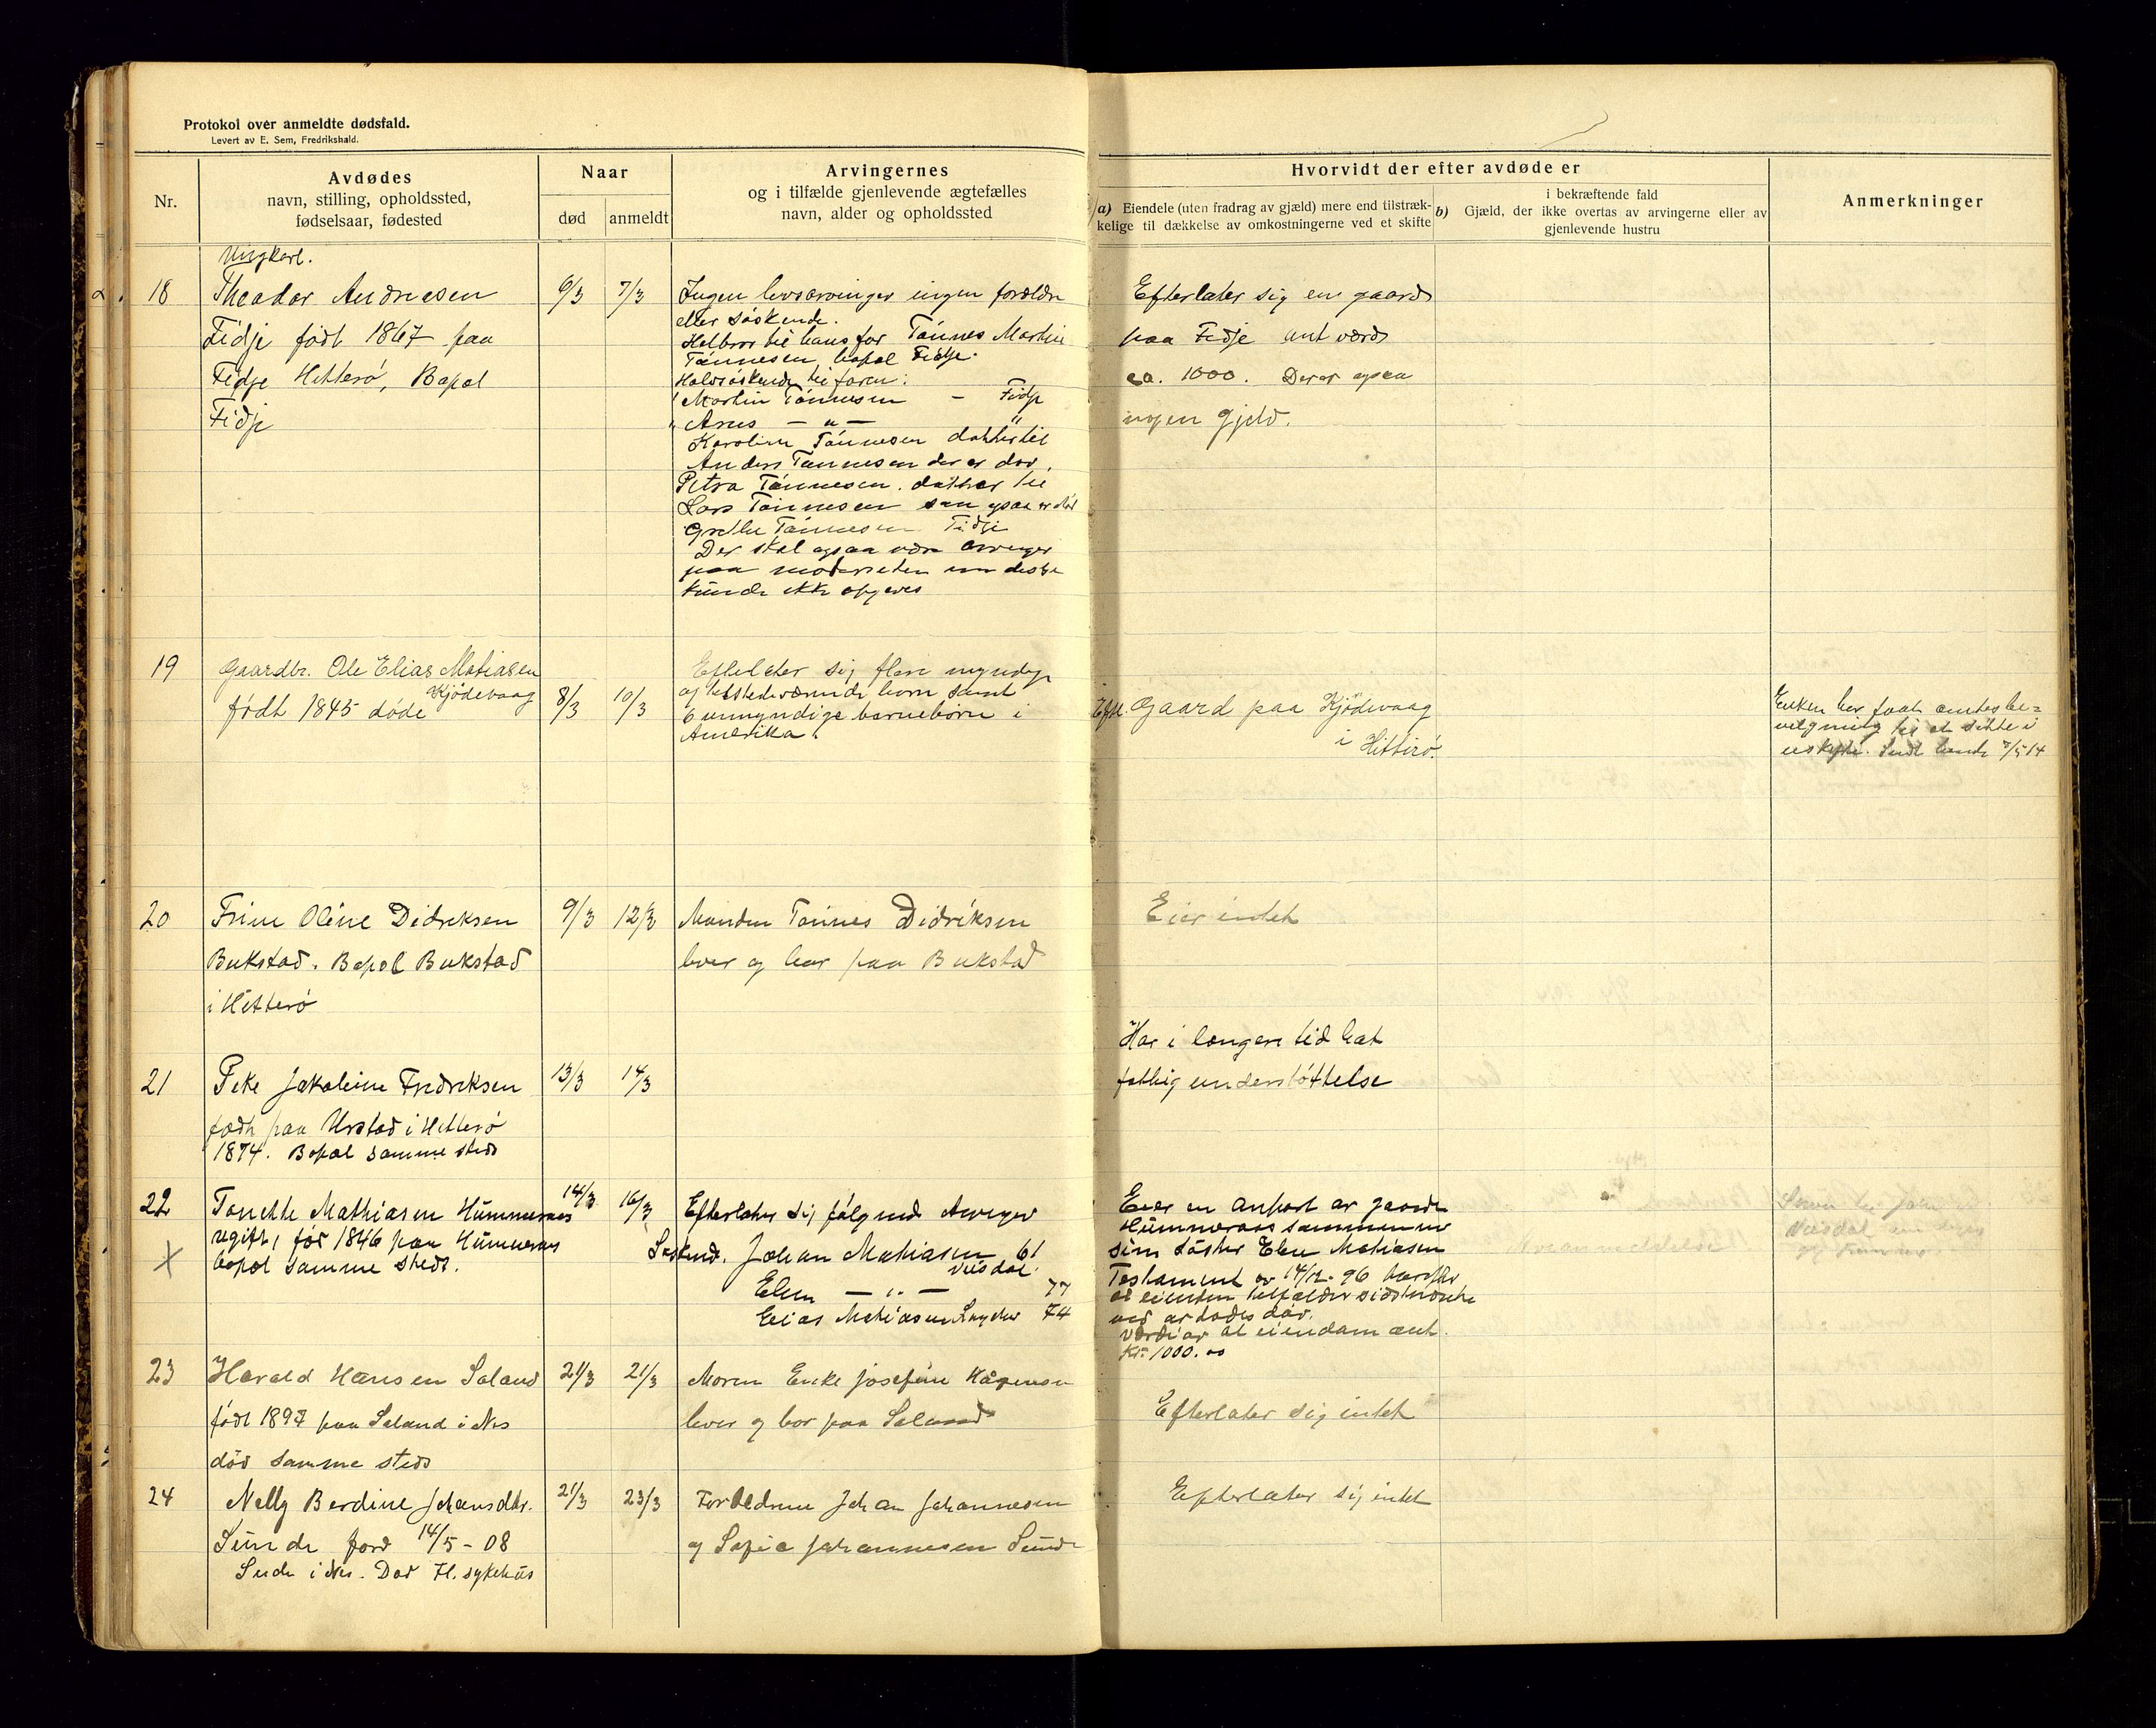 Protokol over anmeldte dødsfald.
Levert av E. Sem, Fredrikshald.
Nr.
Avdødes
navn, stilling, opholdssted,
fødselsaar, fødested
Naar
død
anmeldt
Arvingernes
og i tilfælde gjenlevende ægtefælles
navn, alder og opholdssted
Hvorvidt der efter avdøde er
a) Eiendele (uten fradrag av gjæld) mere end tilstræk-
kelige til dækkelse av omkostningerne ved et skifte
b)
i bekræftende fald
Gjæld, der ikke overtas av arvingerne eller av
gjenlevende hustru
Anmerkninger
Ungkarl.
18
Theodor Andresen
Fidje født 1867 paa
Fidje Hitterö, Bopæl
Fidje
6/3
7/3
Ingen livsarvinger ingen forældre
eller søskende.
Helbror til hans far Tønnes Martin
Tönnesen, bopæl Fidje.
Halvsøskende til faren:
Martin Tönnesen — Fidje
Anus — " — "
Karoline Tönnesen datter til
Anders Tönnesen der er død.
Petra Tönnesen, datter til
Lars Tönnesen som ogsaa er død
Grethe Tönnesen Fidje
Der skal ogsaa være arvinger
paa moderssiden men disse
kunde ikke opgives
Efterlater sig en gaard
paa Fidje ant værd
ca. 1000. Der er ogsaa
nogen gjeld.
19
Gaardbr. Ole Elias Matiasen
Kjödevaag
født 1845 døde
8/3
10/3
Efterlater sig flere myndige
og tilstedeværende børn samt
6 umyndige barnebörn i
Amerika.
Gaard paa Kjödevaag
i Hitterö.
Enken har faat amtets be-
vilgning til at sitte i
uskiftet. Sendt hende 7/5 14
20
Trine Oline Didriksen
Bukstad. Bopæl Bukstad
i Hitterö
9/3
12/3
Manden Tönnes Didriksen
lever og bor paa Bukstad
Eier intet
21
Peke Jakobine Fredriksen
født paa Urstad i Hitterö
1874. Bopæl samme sted
13/3
14/3
Har i længere tid hat
fattigunderstöttelse
22
Tonette Mathiasen Hummeraas
ugift, fød 1846 paa Hummeraas
bopæl samme sted.
14/3
16/3
Efterlater sig følgende Arvinger
Søskend. Johan Matiasen 61
Elen — " — 77
Elias Matiasen 74
Eier en anpart av gaarden
Hummeraas sammen med
sin söster Elen Matiasen
Testament av 14/12-96 hvorefter
at eiendom tilfalder sidstnævnte
ved avdødes död.
Værdi av al eiendom ant.
Kr. 1000.00
23
Harald Hansen Saland
født 1897 paa Saland i Nes
död samme sted
21/3
21/3
Moren Enke Josefine
lever og bor paa Saland
Efterlater sig intet
24
Nelly Berdine Johansdtr.
Sunde född 14/5-08
Sunde i Nes. Død Fl. sykehus
21/3
23/3
Forældrene Johan Johannesen
og Sofie Johannesen Sunde
Efterlater sig intet